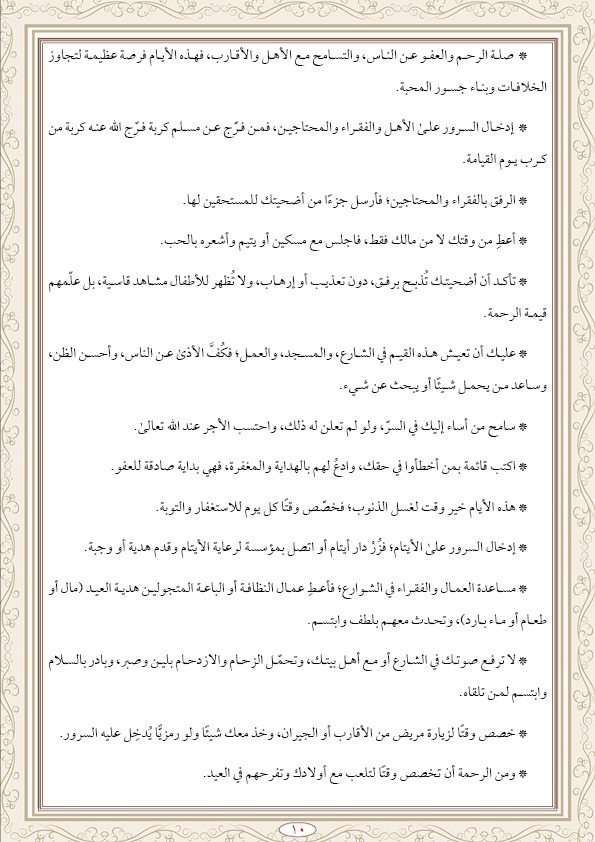 ❊ صلة الرحم والعفو عن الناس، والتسامح مع الأهل والأقارب، فهذه الأيام فرصة عظيمة لتجاوز
الخلافات وبناء جسور المحبة.
❊ إدخال السرور علىٰ الأهل والفقراء والمحتاجين، فمن فرّج عن مسلم كربة فرّج الله عنه كربة من
كرب يوم القيامة.
❊ الرفق بالفقراء والمحتاجين؛ فأرسل جزءًا من أضحيتك للمستحقين لها.
❊ أعطِ من وقتك لا من مالك فقط، فاجلس مع مسكين أو يتيم وأشعره بالحب.
❊ تأكد أن أضحيتك تُذبح برفق، دون تعذيب أو إرهاب، ولا تُظهر للأطفال مشاهد قاسية، بل علّمهم
قيمة الرحمة.
❊ عليك أن تعيش هذه القيم في الشارع، والمسجد، والعمل؛ فكُفَّ الأذىٰ عن الناس، وأحسن الظن،
وساعد من يحمل شيئًا أو يبحث عن شيء.
❊ سامح من أساء إليك في السرّ، ولو لم تعلن له ذلك، واحتسب الأجر عند الله تعالىٰ.
❊ اكتب قائمة بمن أخطأوا في حقك، وادعُ لهم بالهداية والمغفرة، فهي بداية صادقة للعفو.
❊ هذه الأيام خير وقت لغسل الذنوب؛ فخصّص وقتًا كل يوم للاستغفار والتوبة.
❊ إدخال السرور علىٰ الأيتام؛ فزُرْ دار أيتام أو اتصل بمؤسسة لرعاية الأيتام وقدم هدية أو وجبة.
❊ مساعدة العمال والفقراء في الشوارع؛ فأعطِ عمال النظافة أو الباعة المتجولين هدية العيد (مال أو
طعام أو ماء بارد)، وتحدث معهم بلطف وابتسم.
❊ لا ترفع صوتك في الشارع أو مع أهل بيتك، وتحمّل الزحام والازدحام بلين وصبر، وبادر بالسلام
وابتسم لمن تلقاه.
❊ خصص وقتًا لزيارة مريض من الأقارب أو الجيران، وخذ معك شيئًا ولو رمزيًّا يُدخِل عليه السرور.
❊ ومن الرحمة أن تخصص وقتًا لتلعب مع أولادك وتفرحهم في العيد.
١٠